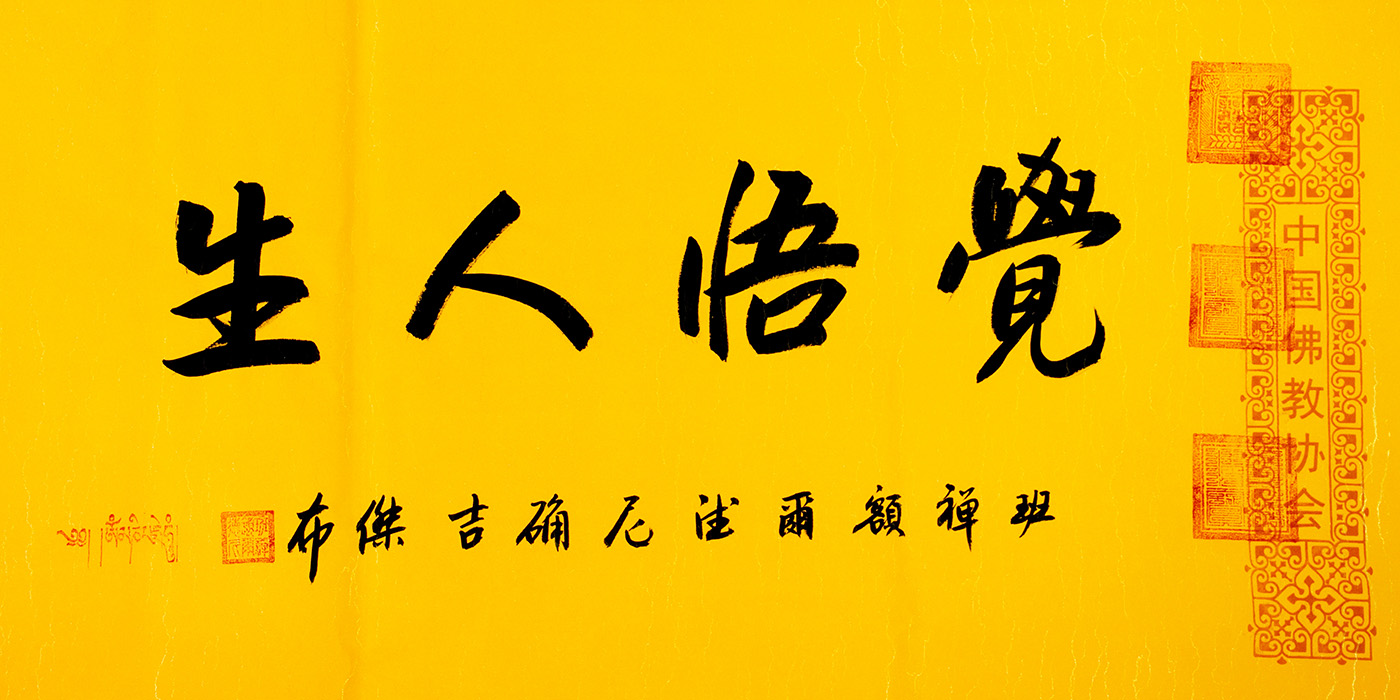 中国佛教协会
覺悟人生
班禅額爾德尼确吉傑布